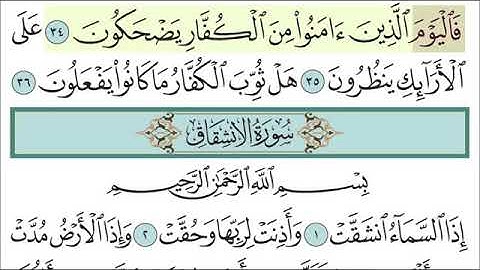 فَٱلْيَوْمَ ٱلَّذِينَ ءَامَنُوا۟ مِنَ ٱلْكُفَّارِ يَضْحَكُونَ ٣٤ عَلَى
ٱلْأَرَآئِكِ يَنظُرُونَ ٣٥ هَلْ ثُوِّبَ ٱلْكُفَّارُ مَا كَانُوا۟ يَفْعَلُونَ ٣٦
سُورَةُ الانشِقَاقِ
بِسْمِ ٱللَّهِ ٱلرَّحْمَٰنِ ٱلرَّحِيمِ
إِذَا ٱلسَّمَآءُ ٱنشَقَّتْ ١ وَأَذِنَتْ لِرَبِّهَا وَحُقَّتْ ٢ وَإِذَا ٱلْأَرْضُ مُدَّتْ